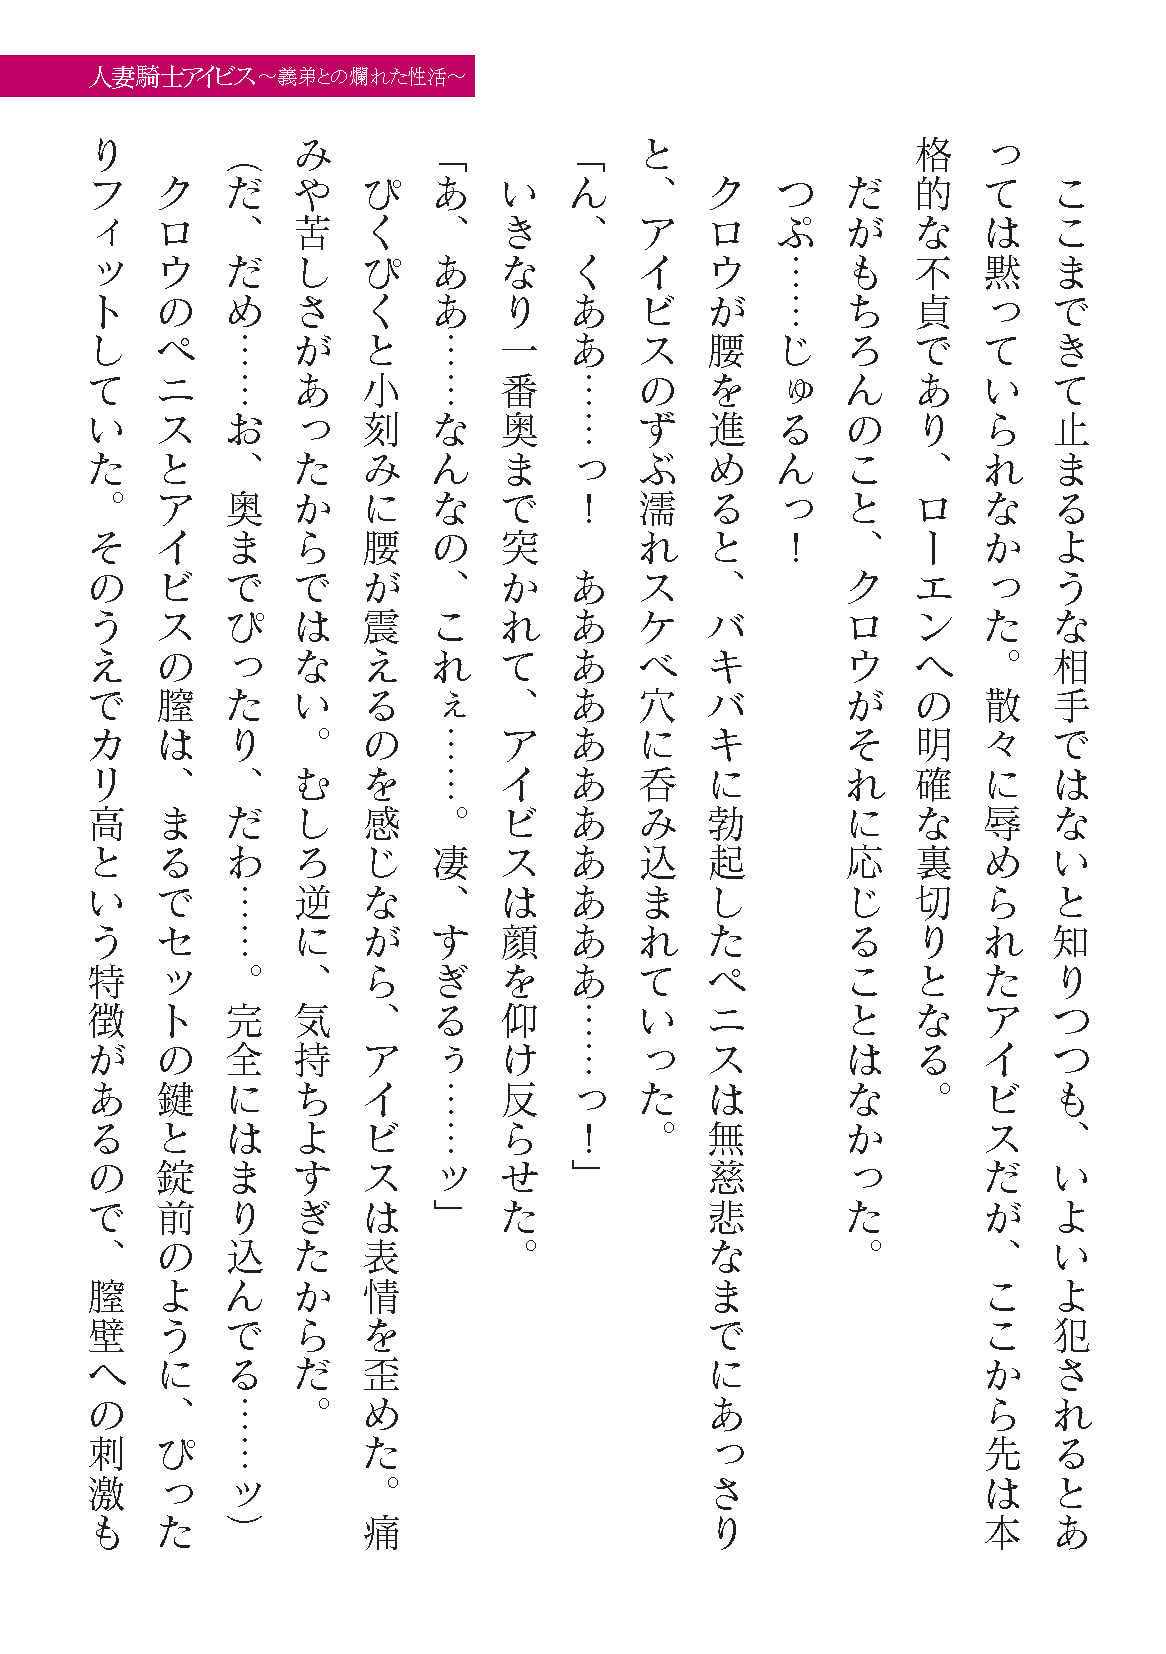 人妻騎士アイビス～義弟との爛れた性活～
ここまできて止まるような相手ではないと知りつつも、いよいよ犯されるとあ
っては黙っていられなかった。散々に辱められたアイビスだが、ここから先は本
格的な不貞であり、ローエンへの明確な裏切りとなる。
だがもちろんのこと、クロウがそれに応じることはなかった。
つぷ……じゅるんっ！
クロウが腰を進めると、バキバキに勃起したペニスは無慈悲なまでにあっさり
と、アイビスのずぶ濡れスケベ穴に呑み込まれていった。
「ん、くああ……っ！　あああああああああああ……っ！」
いきなり一番奥まで突かれて、アイビスは顔を仰け反らせた。
「あ、ああ……なんなの、これぇ……。凄、すぎるぅ……ッ」
ぴくぴくと小刻みに腰が震えるのを感じながら、アイビスは表情を歪めた。痛
みや苦しさがあったからではない。むしろ逆に、気持ちよすぎたからだ。
（だ、だめ……お、奥までぴったり、だわ……。完全にはまり込んでる……ッ）
クロウのペニスとアイビスの膣は、まるでセットの鍵と錠前のように、ぴった
りフィットしていた。そのうえでカリ高という特徴があるので、膣壁への刺激も